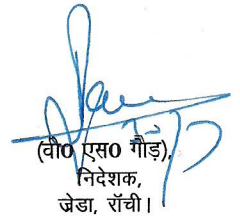 (वी0 एस0 गौड़),
निदेशक,
ज्रेडा, रॉची।